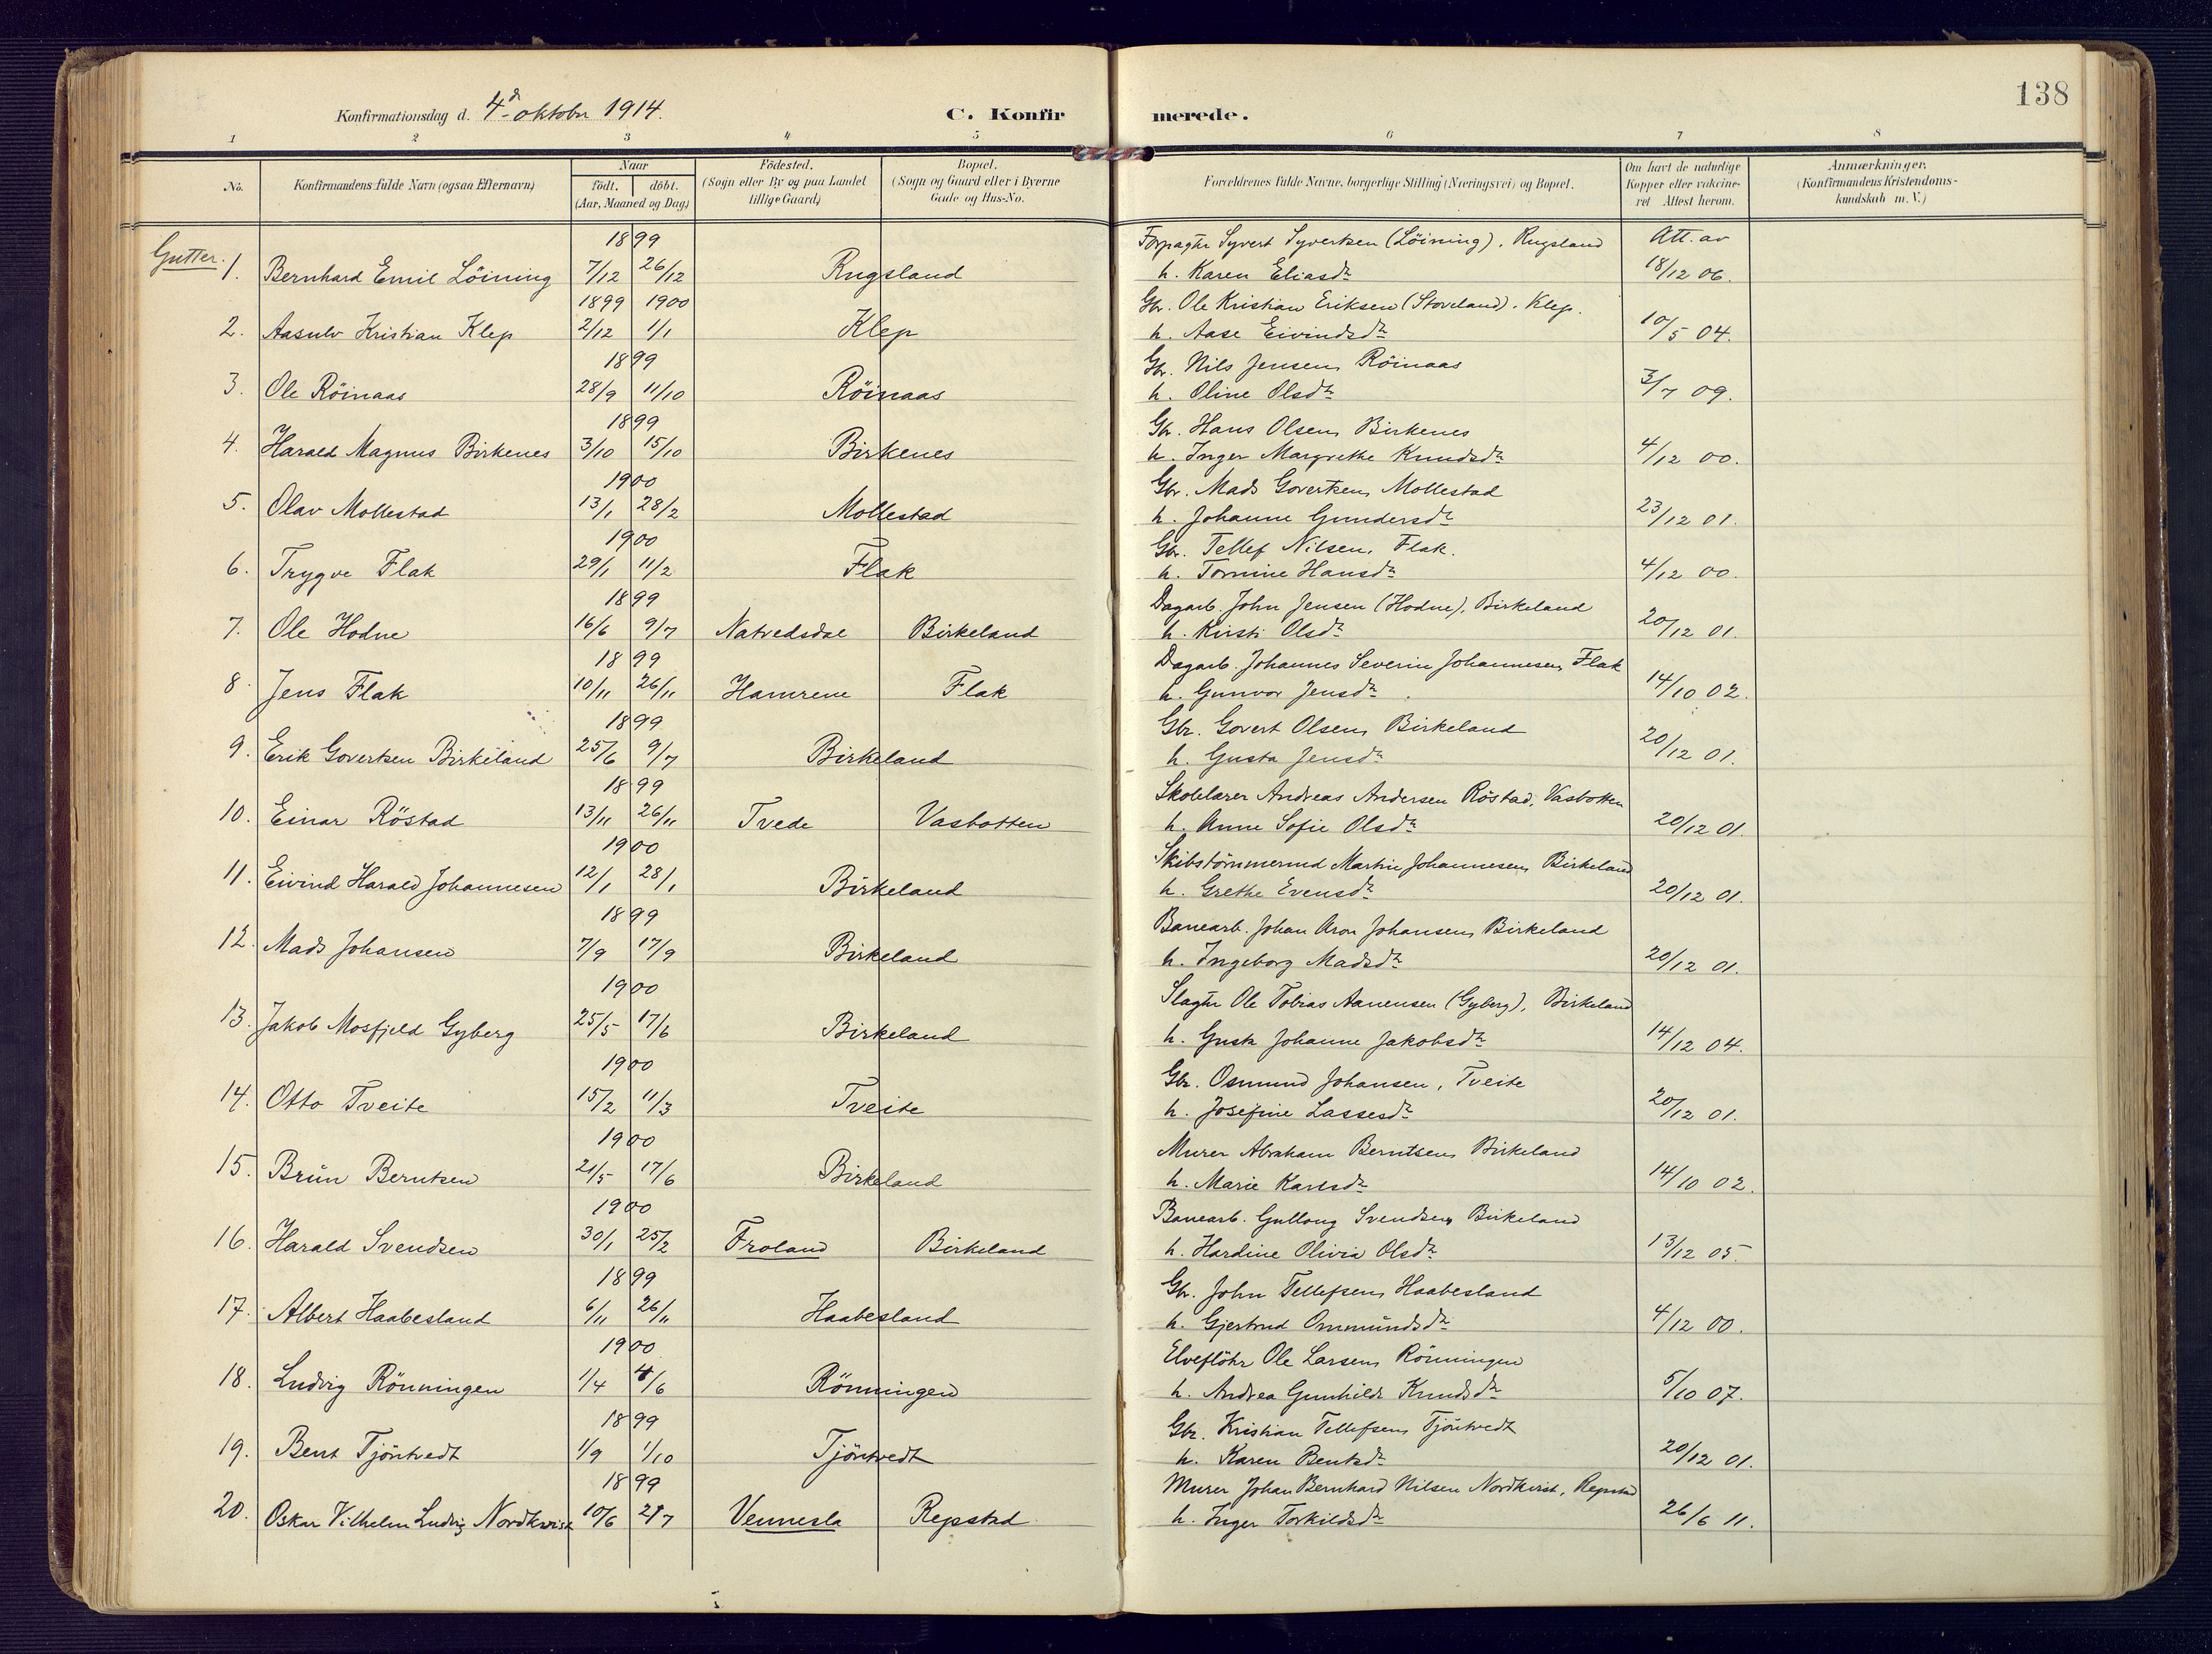 138
Konfirmationsdag d. 4de oktober 1914.
C. Konfirmerede.
1 2 3 4 5 6 7 8
No. Konfirmandens fulde Navn (ogsaa Efternavn) Naar födt. döbt. (Aar, Maaned og Dag) Födested. (Sogn eller By og paa Landet tillige Gaard) Bopæl. (Sogn og Gaard eller i Byerne Gade og Hus-No. Forældrenes fulde Navne, borgerlige Stilling (Næringsvei) og Bopæl. Om havt de naturlige Kopper eller vakcineret Attest herom. Anmærkninger. (Konfirmandens Kristendomskundskab m. V.)
Gutter.
1899 Forpagter Syvert Syvertsen (Löining), Rugsland Att. av
1. Bernhard Emil Löining 7/12 26/12 Rugsland h. Karen Eliasdr 18/12 06.
1899 1900 Gbr. Ole Kristian Eriksen (Stoveland). Klep.
2. Aasulv Kristian Klep 2/12 1/1 Klep h. Aase Eivindsdr 10/5 04.
1899 Gbr. Nils Jensen, Röinaas
3. Ole Röinaas 28/9 11/10 Röinaas h. Oline Olsdr 3/7 09.
1899 Gbr. Hans Olsen, Birkenes
4. Harald Magnus Birkenes 3/10 15/10 Birkenes h. Inger Margrethe Knudsdr 4/12 00.
1900 Gbr. Mads Govertsen, Mollestad
5. Olav Mollestad 13/1 28/2 Mollestad h. Johanne Gundersdr 23/12 01.
1900 Gbr. Tellef Nilsen, Flak.
6. Trygve Flak 29/1 11/2 Flak h. Tomine Hansdr 4/12 00.
1899 Dagarb. John Jensen (Hodne), Birkeland
7. Ole Hodne 16/6 9/7 Natvedsdal Birkeland h. Kirsti Olsdr 20/12 01.
1899 Dagarb. Johannes Severin Johannesen, Flak
8. Jens Flak 10/11 26/11 Hamrene Flak h. Gunvor Jensdr 14/10 02.
1899 Gbr. Govert Olsen, Birkeland
9. Erik Govertsen Birkeland 25/6 9/7 Birkeland h. Gusta Jensdr 20/12 01.
1899 Skolelærer Andreas Andersen Röstad, Vasbotten
10. Einar Röstad 13/11 26/11 Tvede Vasbotten h. Anne Sofie Olsdr 20/12 01.
1900 Skibstömmermd Martin Johannesen, Birkeland
11. Eivind Harald Johannesen 12/1 28/1 Birkeland h. Grethe Evensdr 20/12 01.
1899 Banearb. Johan Aron Johansen, Birkeland
12. Mads Johansen 7/9 17/9 Birkeland h. Ingeborg Madsdr 20/12 01.
1900 Slagter Ole Tobias Aanensen (Gyberg), Birkeland
13. Jakob Mosfjeld Gyberg 25/5 17/6 Birkeland h. Gusta Johanne Jakobsdr 14/12 04.
1900 Gbr. Osmund Johansen, Tveite
14. Otto Tveite 15/2 11/3 Tveite h. Josefine Lassesdr 20/12 01.
1900 Murer Abraham Berntsen, Birkeland
15. Brün Berntsen 21/5 17/6 Birkeland h. Marie Karlsdr 14/10 02.
1900 Banearb. Gullong Svendsen, Birkeland
16. Harald Svendsen 30/1 25/2 Froland Birkeland h. Hardine Olivia Olsdr 13/12 05.
1899 Gbr. John Tellefsen, Haabesland
17. Albert Haabesland 6/11 26/11 Haabesland h. Gjertrud Ommundsdr 4/12 00.
1900 Elveflöter Ole Larsen, Rönningen
18. Ludvig Rönningen 1/4 4/6 Rönningen h. Andrea Gunhilde Knudsdr 5/10 07.
1899 Gbr. Kristian Tellefsen, Tjöntvedt
19. Bent Tjöntvedt 1/9 1/10 Tjöntvedt h. Karen Bentsdr 20/12 01.
1899 Murer Johan Bernhard Nilsen Nordkvist, Repstad
20. Oskar Vilhelm Ludvig Nordkvist 10/6 2/7 Vennesla Repstad h. Inger Torkildsdr 26/6 11.